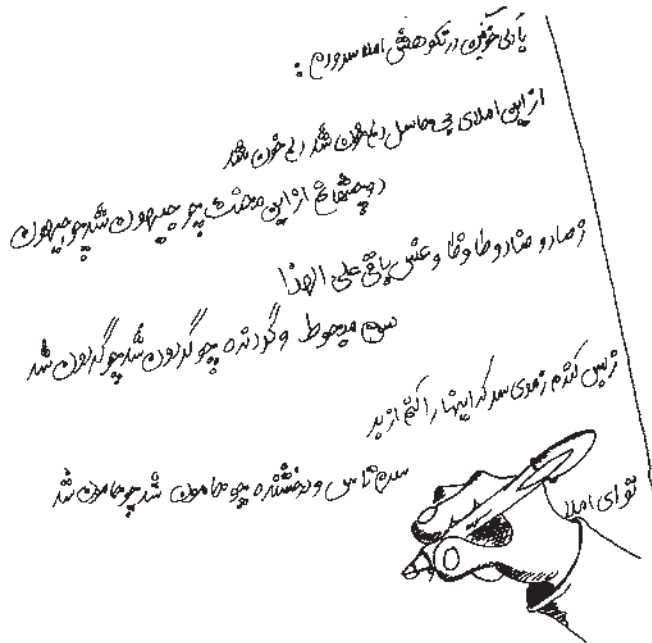 با دلی خونین در نکوهش املا سرودم :
از این املای بی حاصل دلم خون شد دلم خون شد
دو چشمانم از این محنت چو جیحون شد چو جیحون
ز صاد و ضاد و طا و ظا و عین باقی علی الهذا
سرم مخوط و گردنده چو گردون شد چو گردون شد
ز بس کندم ز موی سر که اینها را کنم از بر
سرم تاس و درخشنده چو هامون شد چو هامون شد
تو ای املا